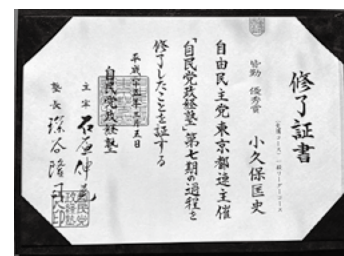 修了証書
皆勤 優秀賞
小久保匡史
自由民主党東京都連主催
「自民党政経塾」第七期の過程を
修了したことを証する
平成二十五年三月五日
自民党政経塾
主宰 石原伸晃
塾長 深谷隆司